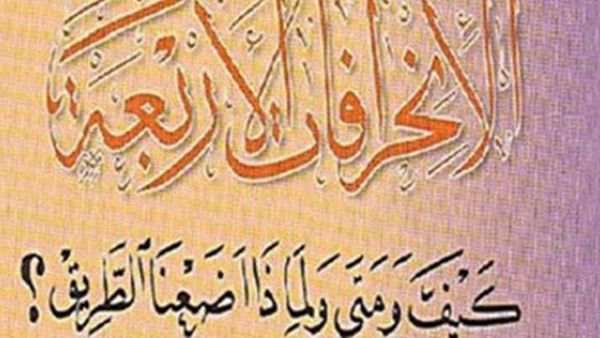 الانحرافات الأربعة
كَيْفَ وَمَتَى وَلِمَاذَا اضَعْنَا الطَّرِيقْ؟